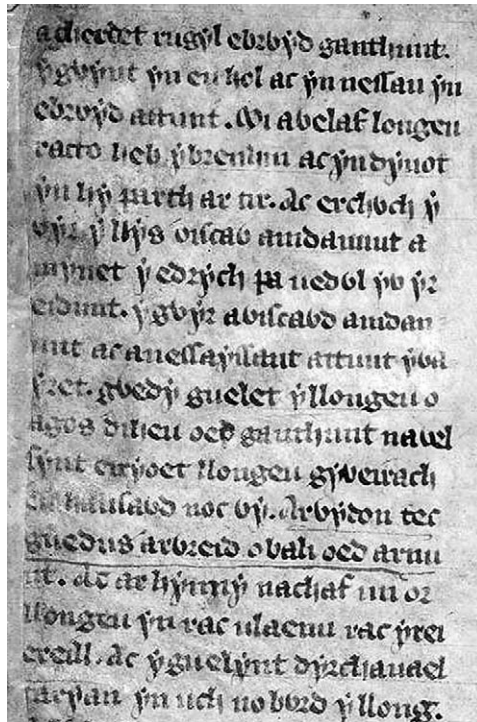 a cherdet rugyl ebrwyd ganthunt.
y gwynt yn eu hol ac yn nessau yn
ebrwyd attunt. Mi a welaf longeu
racco heb y brenhin ac yn dyuot
yn hy parth ar tir. Ac erchwch y
wyr y llys wiscaw amdanunt a
mynet y edrych pa uedwl yw yr
eidunt. y gwyr a wiscawd amdan
unt ac a nessayssant attunt y wa
yret. gwedy guelet y llongeu o
agos diheu oed ganthunt na wel
synt eiryoet llongeu gyweirach
eu hansawd noc wy. Arwydon tec
guedus arwreid o bali oed arnu
nt. Ac ar hynny nachaf un or
llongeu yn rac ulaenu rac y rei
ereill. Ac y guelynt dyrchauael
taryan yn uch no bwrd y llong.